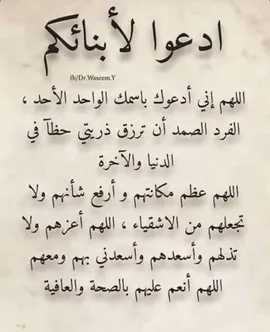 ادعوا لأبنائكم
fb/Dr.Waseem.Y
اللهم إني أدعوك باسمك الواحد الأحد ،
الفرد الصمد أن ترزق ذريتي حظاً في
الدنيا والآخرة
اللهم عظم مكانتهم و أرفع شأنهم ولا
تجعلهم من الاشقياء ، اللهم أعزهم ولا
تذلهم وأسعدهم وأسعدني بهم ومعهم
اللهم أنعم عليهم بالصحة والعافية